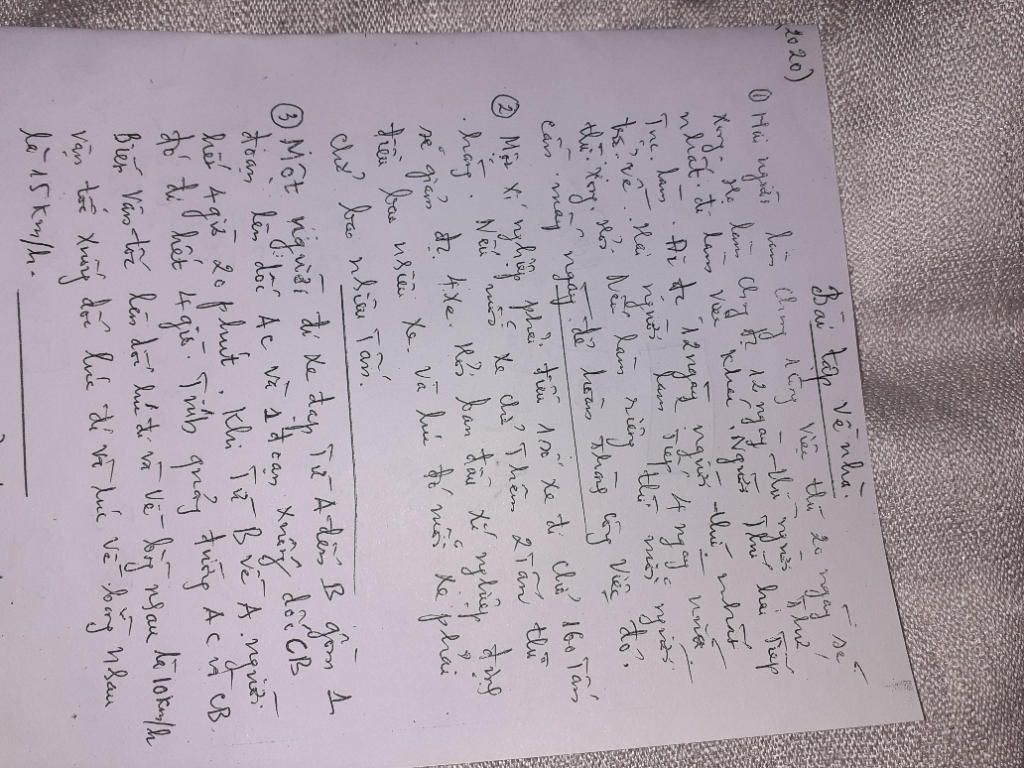 2020)
Bài tập về nhà.
① Hai người làm chung 1 công việc thì 20 ngày sẽ
xong. Họ làm chung được 12 ngày thì người thứ
nhất đi làm việc khác. Người thứ hai tiếp
tục làm. Đi được 12 ngày người thứ nhất
trở về. Hai người làm tiếp 4 ngày nữa
thì xong. Hỏi. Nếu làm riêng thì mỗi người
cần mấy ngày để hoàn thành công việc đó.
② Một xí nghiệp phải điều 1 số xe để chở 160 Tấn
hàng. Nếu mỗi xe chở thêm 2 Tấn thì
sẽ giảm được 4 xe. Hỏi ban đầu xí nghiệp định
điều bao nhiêu xe. Và lúc đó mỗi xe phải
chở bao nhiêu Tấn.
③ Một người đi xe đạp Từ A đến B gồm 1
đoạn lên dốc AC và 1 đoạn xuống dốc CB
hết 4 giờ 20 phút. Khi Từ B về A người
đó đi hết 4 giờ. Tính quãng đường AC và CB.
Biết vận tốc lên dốc lúc đi và về bằng nhau là 10 km/h
Vận tốc xuống dốc lúc đi và lúc về bằng nhau
là 15 km/h.